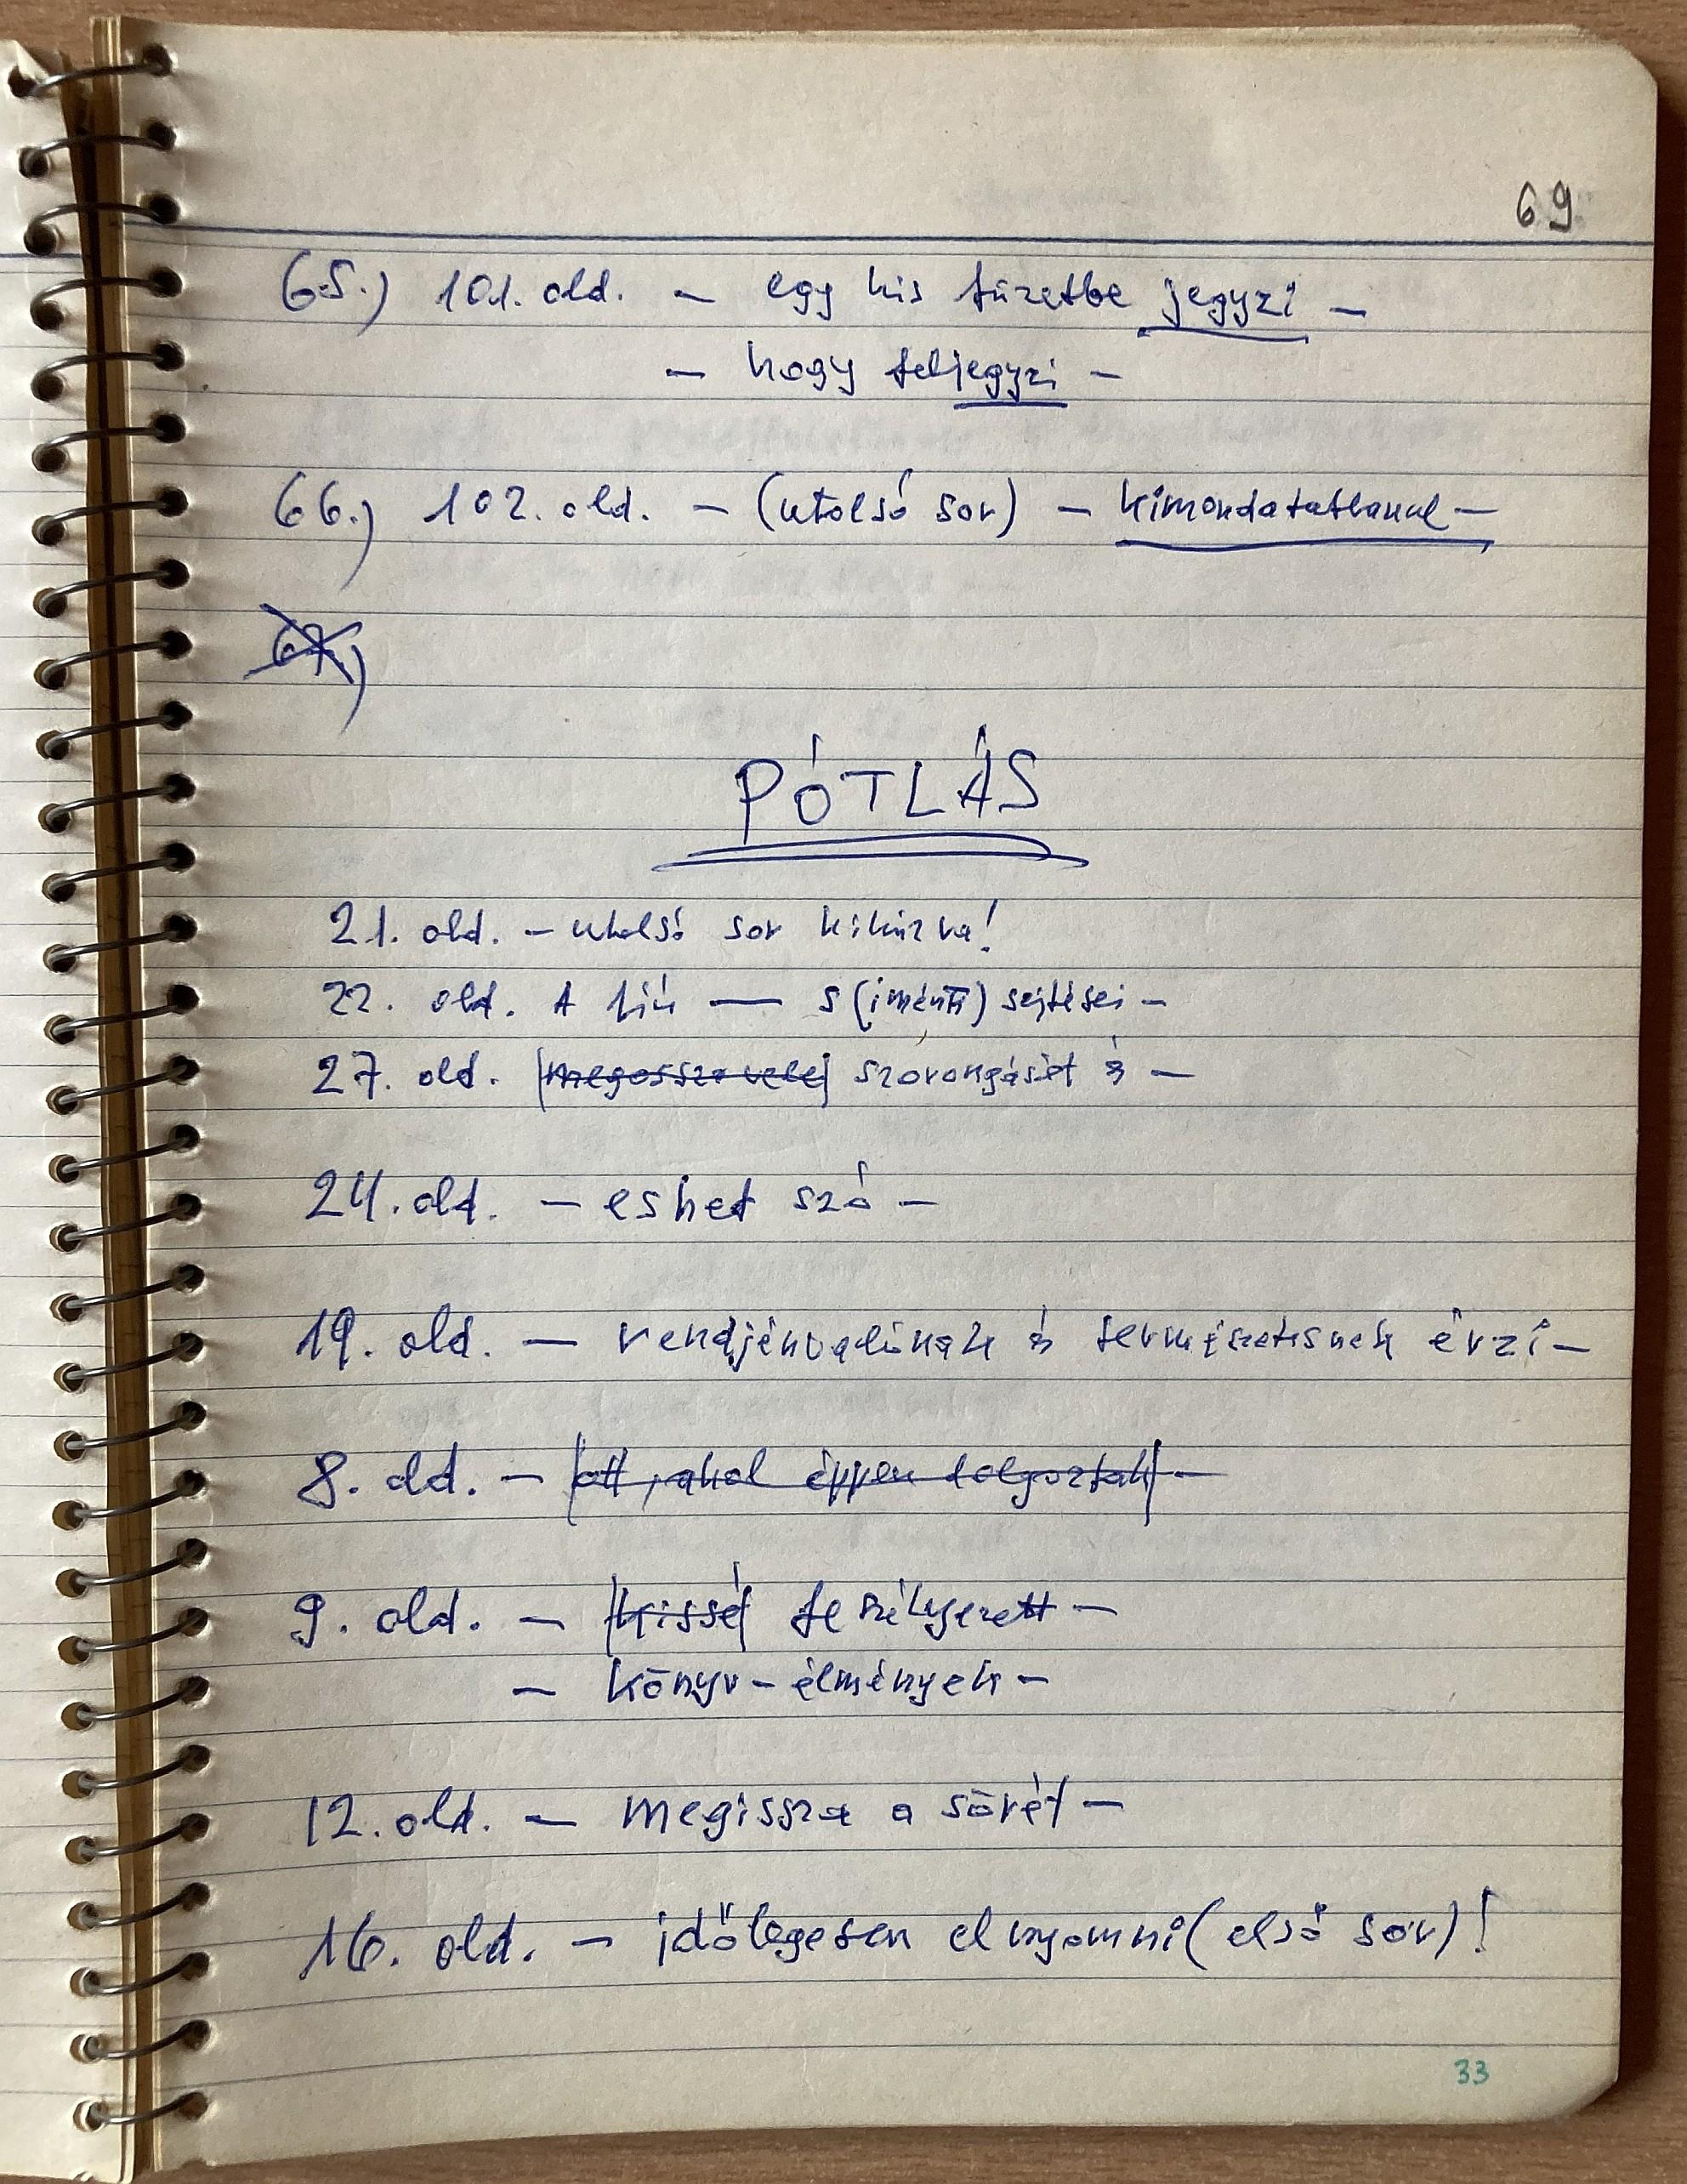 69
65.) 101. old. – egy kis füzetbe jegyzi –
– hogy feljegyzi –
66.) 102. old. – (utolsó sor) – kimondatatlanul –
67.)
PÓTLÁS
21. old. – utolsó sor kihúzva!
22. old. A fiú — s (iménti) sejtései –
27. old. |megossza vele| szorongását és –
24. old. – eshet szó –
19. old. – rendjénvalónak és természetesnek érzi –
8. old. – |ott, ahol éppen dolgoztak| –
9. old. – |kissé| feszélyezett –
– könyv-élmények –
12. old. – megissza a sörét –
16. old. – időlegesen elnyomni (első sor)!
33